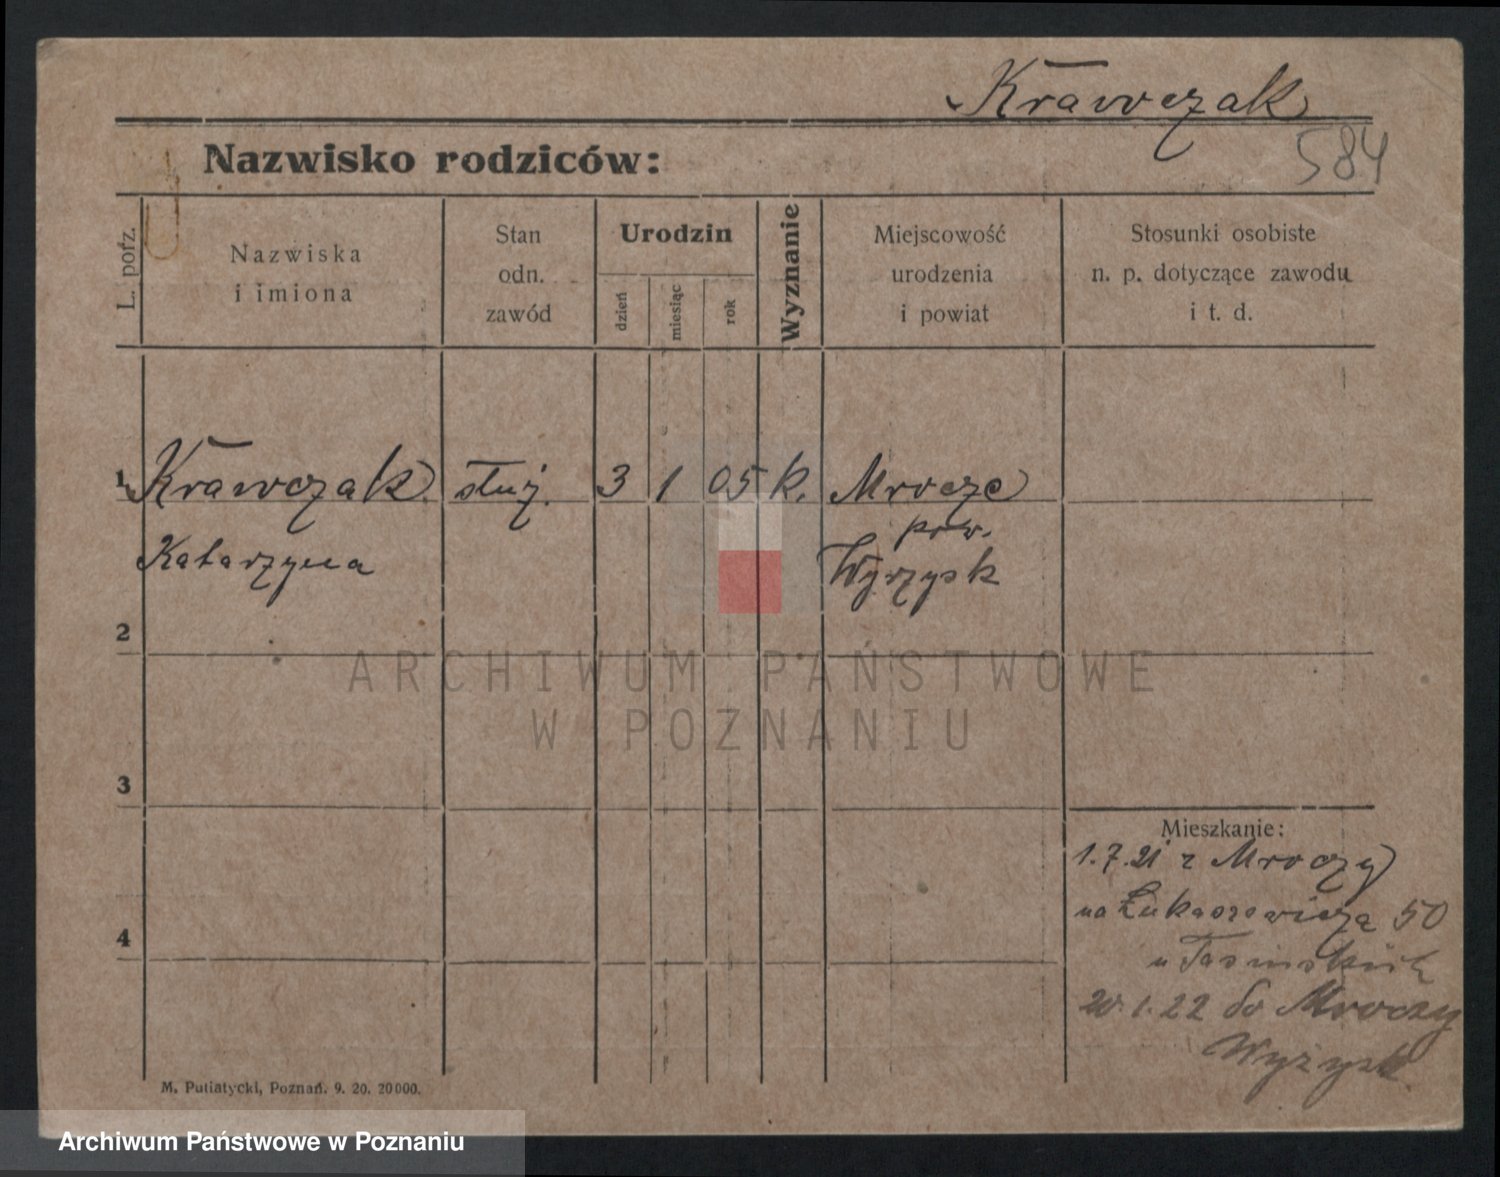 Krawczak
584
Nazwisko rodziców:
L. porz.
Nazwiska
i imiona
Stan
odn.
zawód
Urodzin
dzień
miesiąc
rok
Wyznanie
Miejscowość
urodzenia
i powiat
Stosunki osobiste
n. p. dotyczące zawodu
i t. d.
1 Krawczak służ. 3 1 05 k. Mrocze
pow.
Katarzyna Wyrzysk
2
ARCHIWUM PAŃSTWOWE
W POZNANIU
3
Mieszkanie:
1.7.21 z Mroczy
na Łukaszewicza 50
4
u
20.1.22 do Mroczy
Wyżysk
M. Putiatycki, Poznań. 9. 20. 20000.
Archiwum Państwowe w Poznaniu